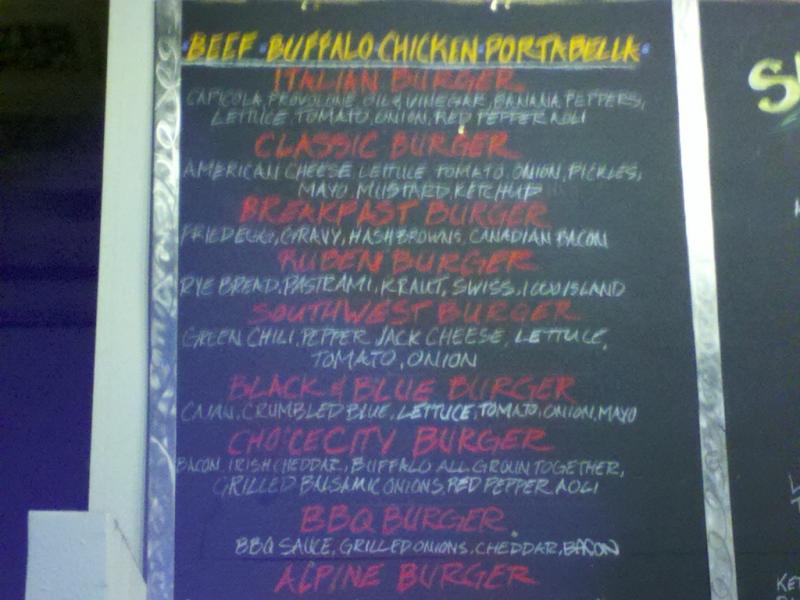 BEEF · BUFFALO CHICKEN · PORTABELLA
ITALIAN BURGER
CAPICOLA, PROVOLONE, OIL & VINEGAR, BANANA PEPPERS,
LETTUCE, TOMATO, ONION, RED PEPPER AOLI
CLASSIC BURGER
AMERICAN CHEESE, LETTUCE TOMATO, ONION, PICKLES,
MAYO, MUSTARD, KETCHUP
BREAKFAST BURGER
FRIED EGG, GRAVY, HASHBROWNS, CANADIAN BACON
RUBEN BURGER
RYE BREAD, PASTRAMI, KRAUT, SWISS, 1000 ISLAND
SOUTHWEST BURGER
GREEN CHILI, PEPPER JACK CHEESE, LETTUCE,
TOMATO, ONION
BLACK & BLUE BURGER
CAJAN, CRUMBLED BLUE, LETTUCE, TOMATO, ONION, MAYO
CHOICECITY BURGER
BACON, IRISH CHEDDAR, BUFFALO ALL GROUN TOGETHER,
GRILLED BALSAMIC ONIONS, RED PEPPER AOLI
BBQ BURGER
BBQ SAUCE, GRILLED ONIONS, CHEDDAR, BACON
ALPINE BURGER
S
KET